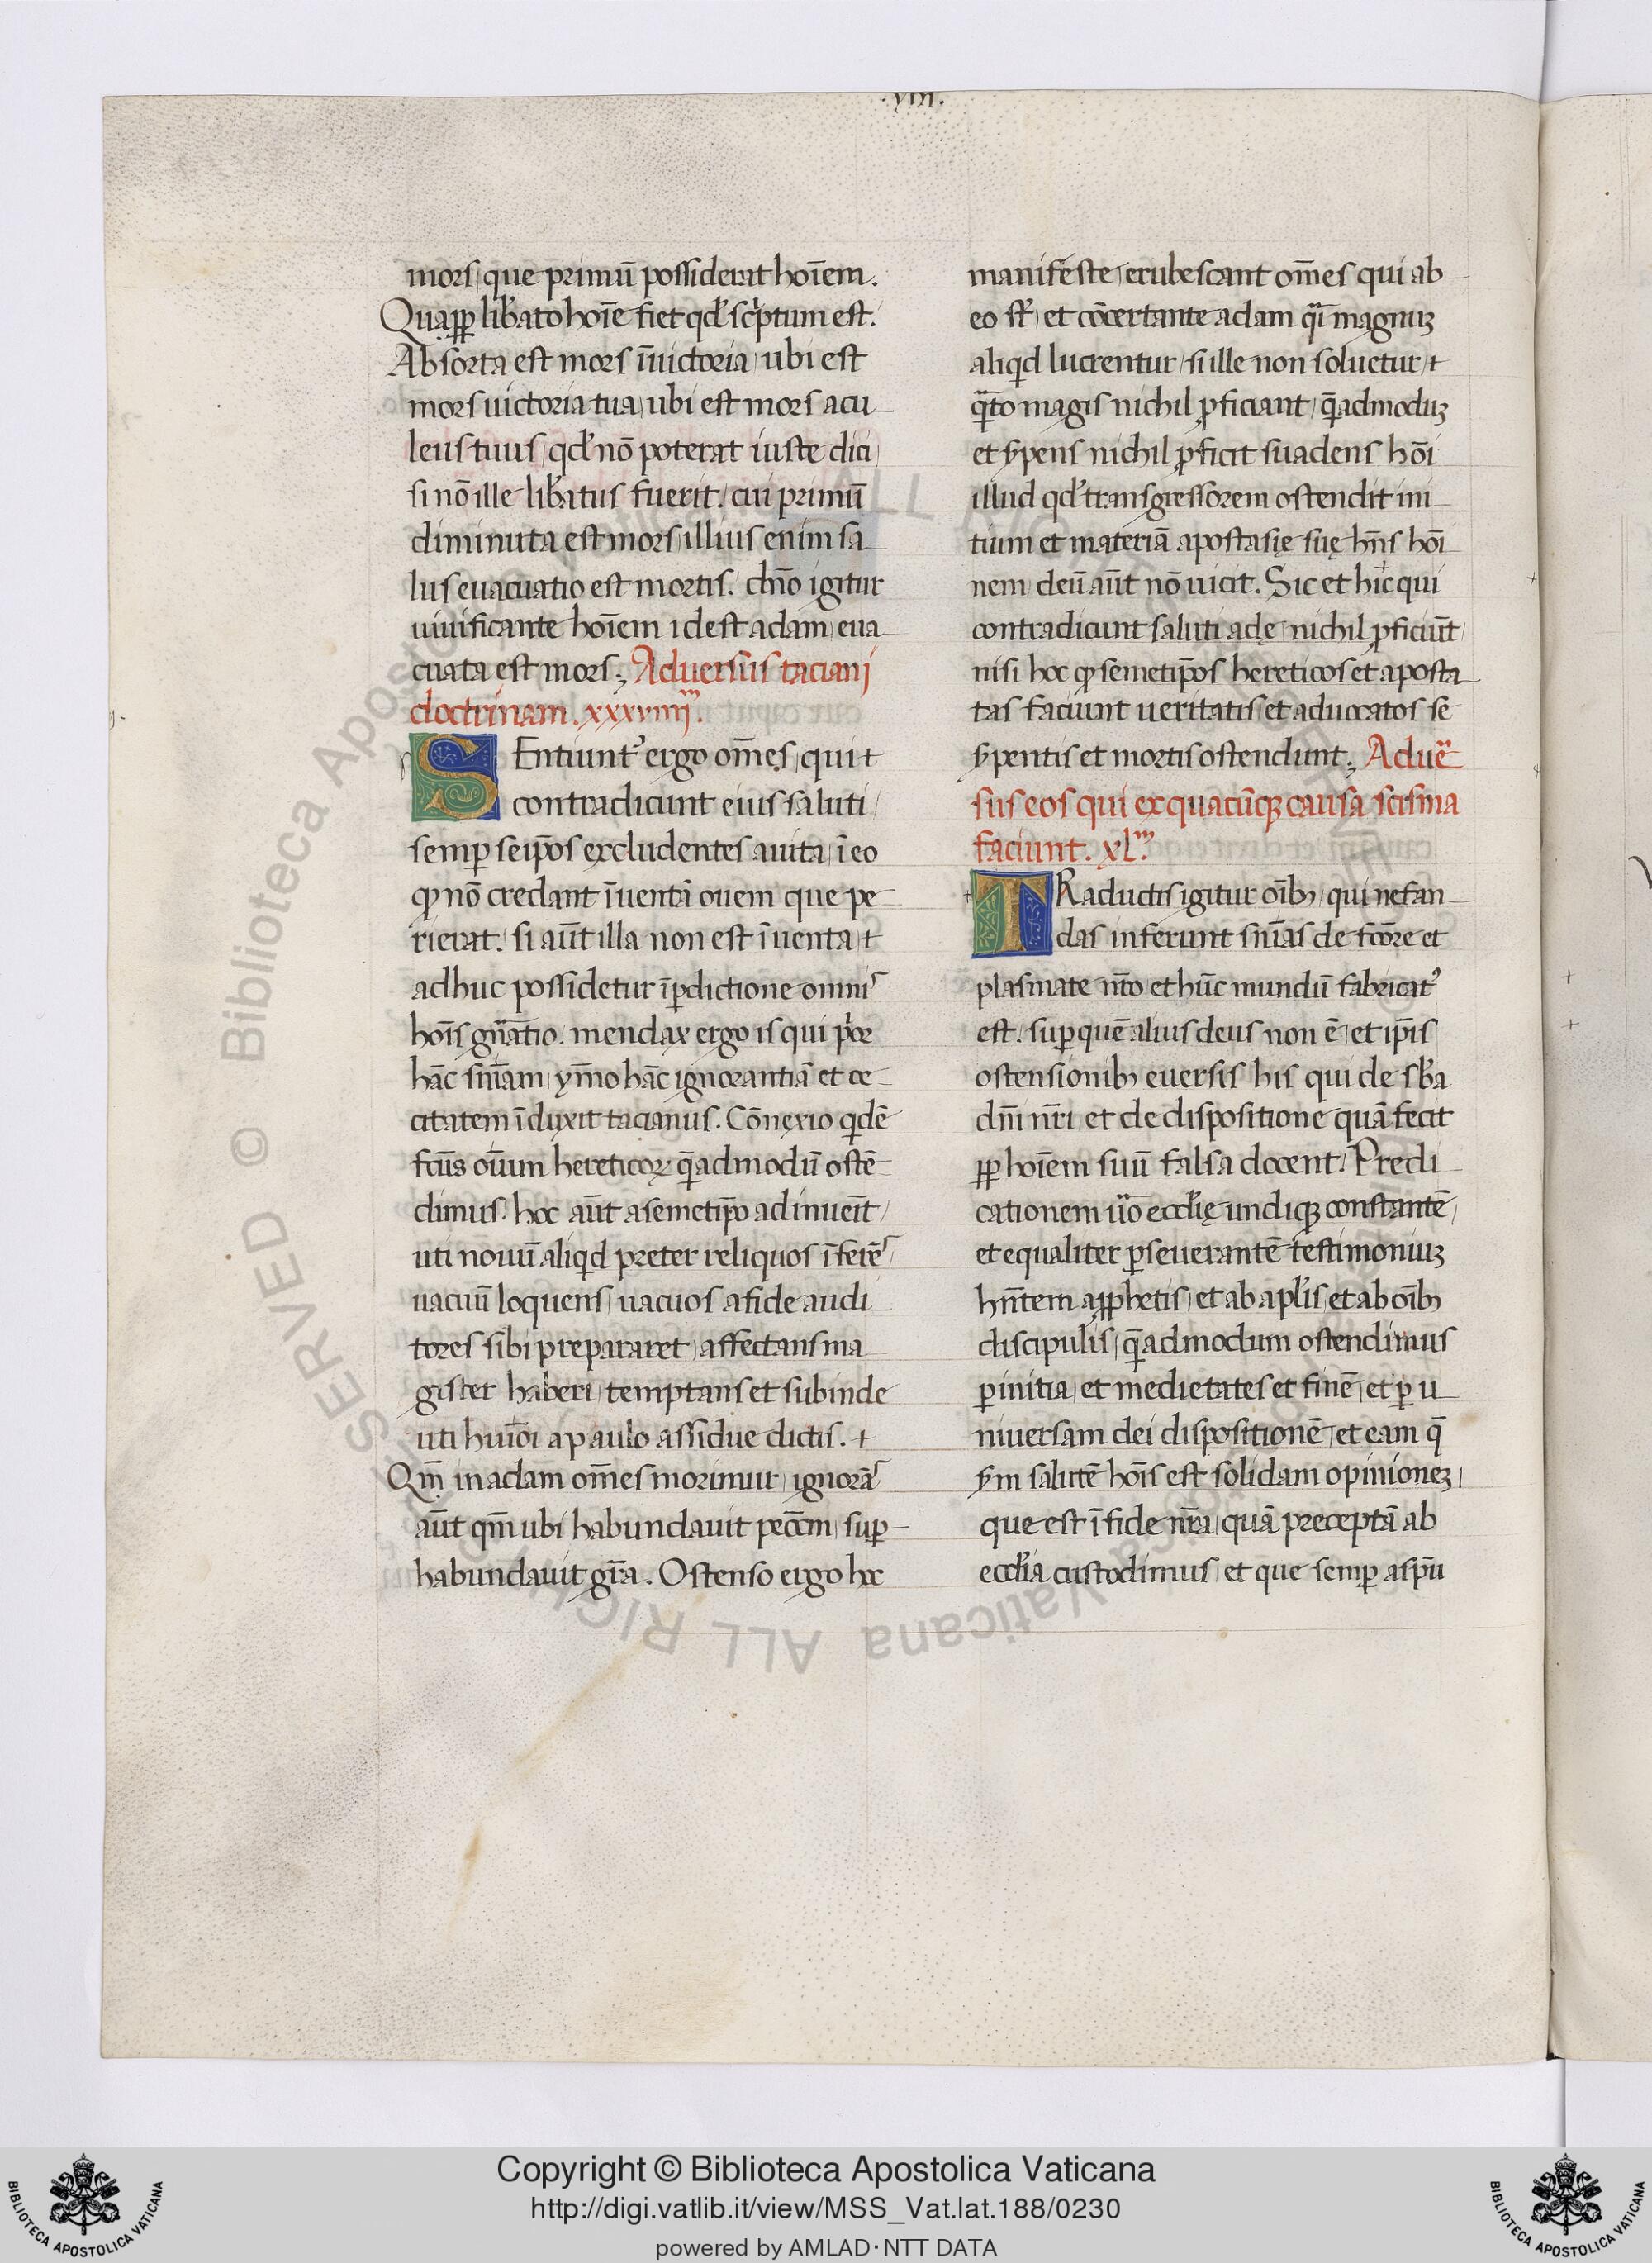 .viii.
mors, que primū possiderat hoīem.
Quapp̱ lib̓ato hoīe fiet qđ sc̓ptum est.
Absorta est mors ī uictoria, ubi est
mors uictoria tua, ubi est mors acu
leus tuus, qđ nō poterat iuste dici,
si nō ille lib̓atus fuerit, cui primū
diminuta est mors, illius enim sa
lus euacuatio est mortis. dn̄o igitur
uiuificante hoīem idest adam, eua
cuata est mors; Aduersus taciani
doctrinam. xxxviiij.
SEntiunt᷒ ergo om̄es, qui +
contradicunt eius saluti,
semp̱ seip̄os excludentes a uita, ī eo
ꝙ nō credant īuentā ouem que pe
rierat. si aūt illa non est īuenta, +
adhuc possidetur ī ꝑdictione omnis
hoīs gn̄atio. mendax ergo is qui p̓or
hāc sn̄iam, ymo hāc ignorantiā et ce
citatem īduxit tacianus. Cōnexio qidē
fc̄us oīum hereticoꝝ q̄admodū ostē
dimus. hoc aūt a semetip̄o adinuēit,
uti nouū aliqid preter reliquos īferēs,
uacuū loquens, uacuos a fide audi
tores sibi prepararet, affectans ma
gister haberi, temptans et subinde
uti hui᷒oi a paulo assidue dictis. +
Qm̄ in adam om̄es morimur, ignorās
aūt qm̄ ubi habundauit pecc̄m, sup̱
habundauit gr̄a. Ostenso ergo hoc
manifeste, erubescant om̄es qui ab
eo st̄, et cōcertante adam qͣi magnuꝫ
aliqid lucrentur, si ille non soluetur, +
qͣ̄to magis nichil ꝓficiant, q̄admoduꝫ
et s̓pens nichil ꝓficit suadens hōi
illud qđ transgressorem ostendit ini
tium et materiā apostasię suę hn̄s hōi
nem, deū aūt nō uicit. Sic et hīc qui
contradicunt saluti adę, nichil ꝓficiūt,
nisi hoc ꝙ semetip̄os hereticos et aposta
tas faciunt ueritatis et aduocatos se
s̓pentis et mortis ostendunt; Adue᷑
sus eos qui ex quacūqꝫ causa scisma
faciunt. xl.
TRaductis igitur oīb᷒, qui nefan
das inferunt sn̄ias de fc̄ore et
plasmate nr̄o et hūc mundū fabricat᷒
est. sup̱ quē alius deus non ē, et ip̄is
ostensionib᷒ euersis his qui de sb̓a
dn̄i nr̄i et de dispositione quā fecit
pp̱ hoīem suū falsa docent. Predi
cationem u᷑o eccłię undiqꝫ constantē,
et equaliter ꝑseuerantē testimoniuꝫ
hn̄tem a p̱phetis, et ab ap̄lis, et ab oīb᷒
discipulis, q̄admodum ostendimus
ꝑ initia, et medietates et finē, et ꝑ u
niuersam dei dispositionē, et eam q̄
s̓m salutē hoīs est solidam opinioneꝫ,
que est ī fide nr̄a, quā preceptā ab
eccłia custodimus, et que semp̱ a sp̄u
Copyright © Biblioteca Apostolica Vaticana
http://digi.vatlib.it/view/MSS_Vat.lat.188/0230
powered by AMLAD·NTT DATA
BIBLIOTECA APOSTOLICA VATICANA
BIBLIOTECA APOSTOLICA VATICANA
© Biblioteca Apostolica Vaticana ALL RIGHTS RESERVED